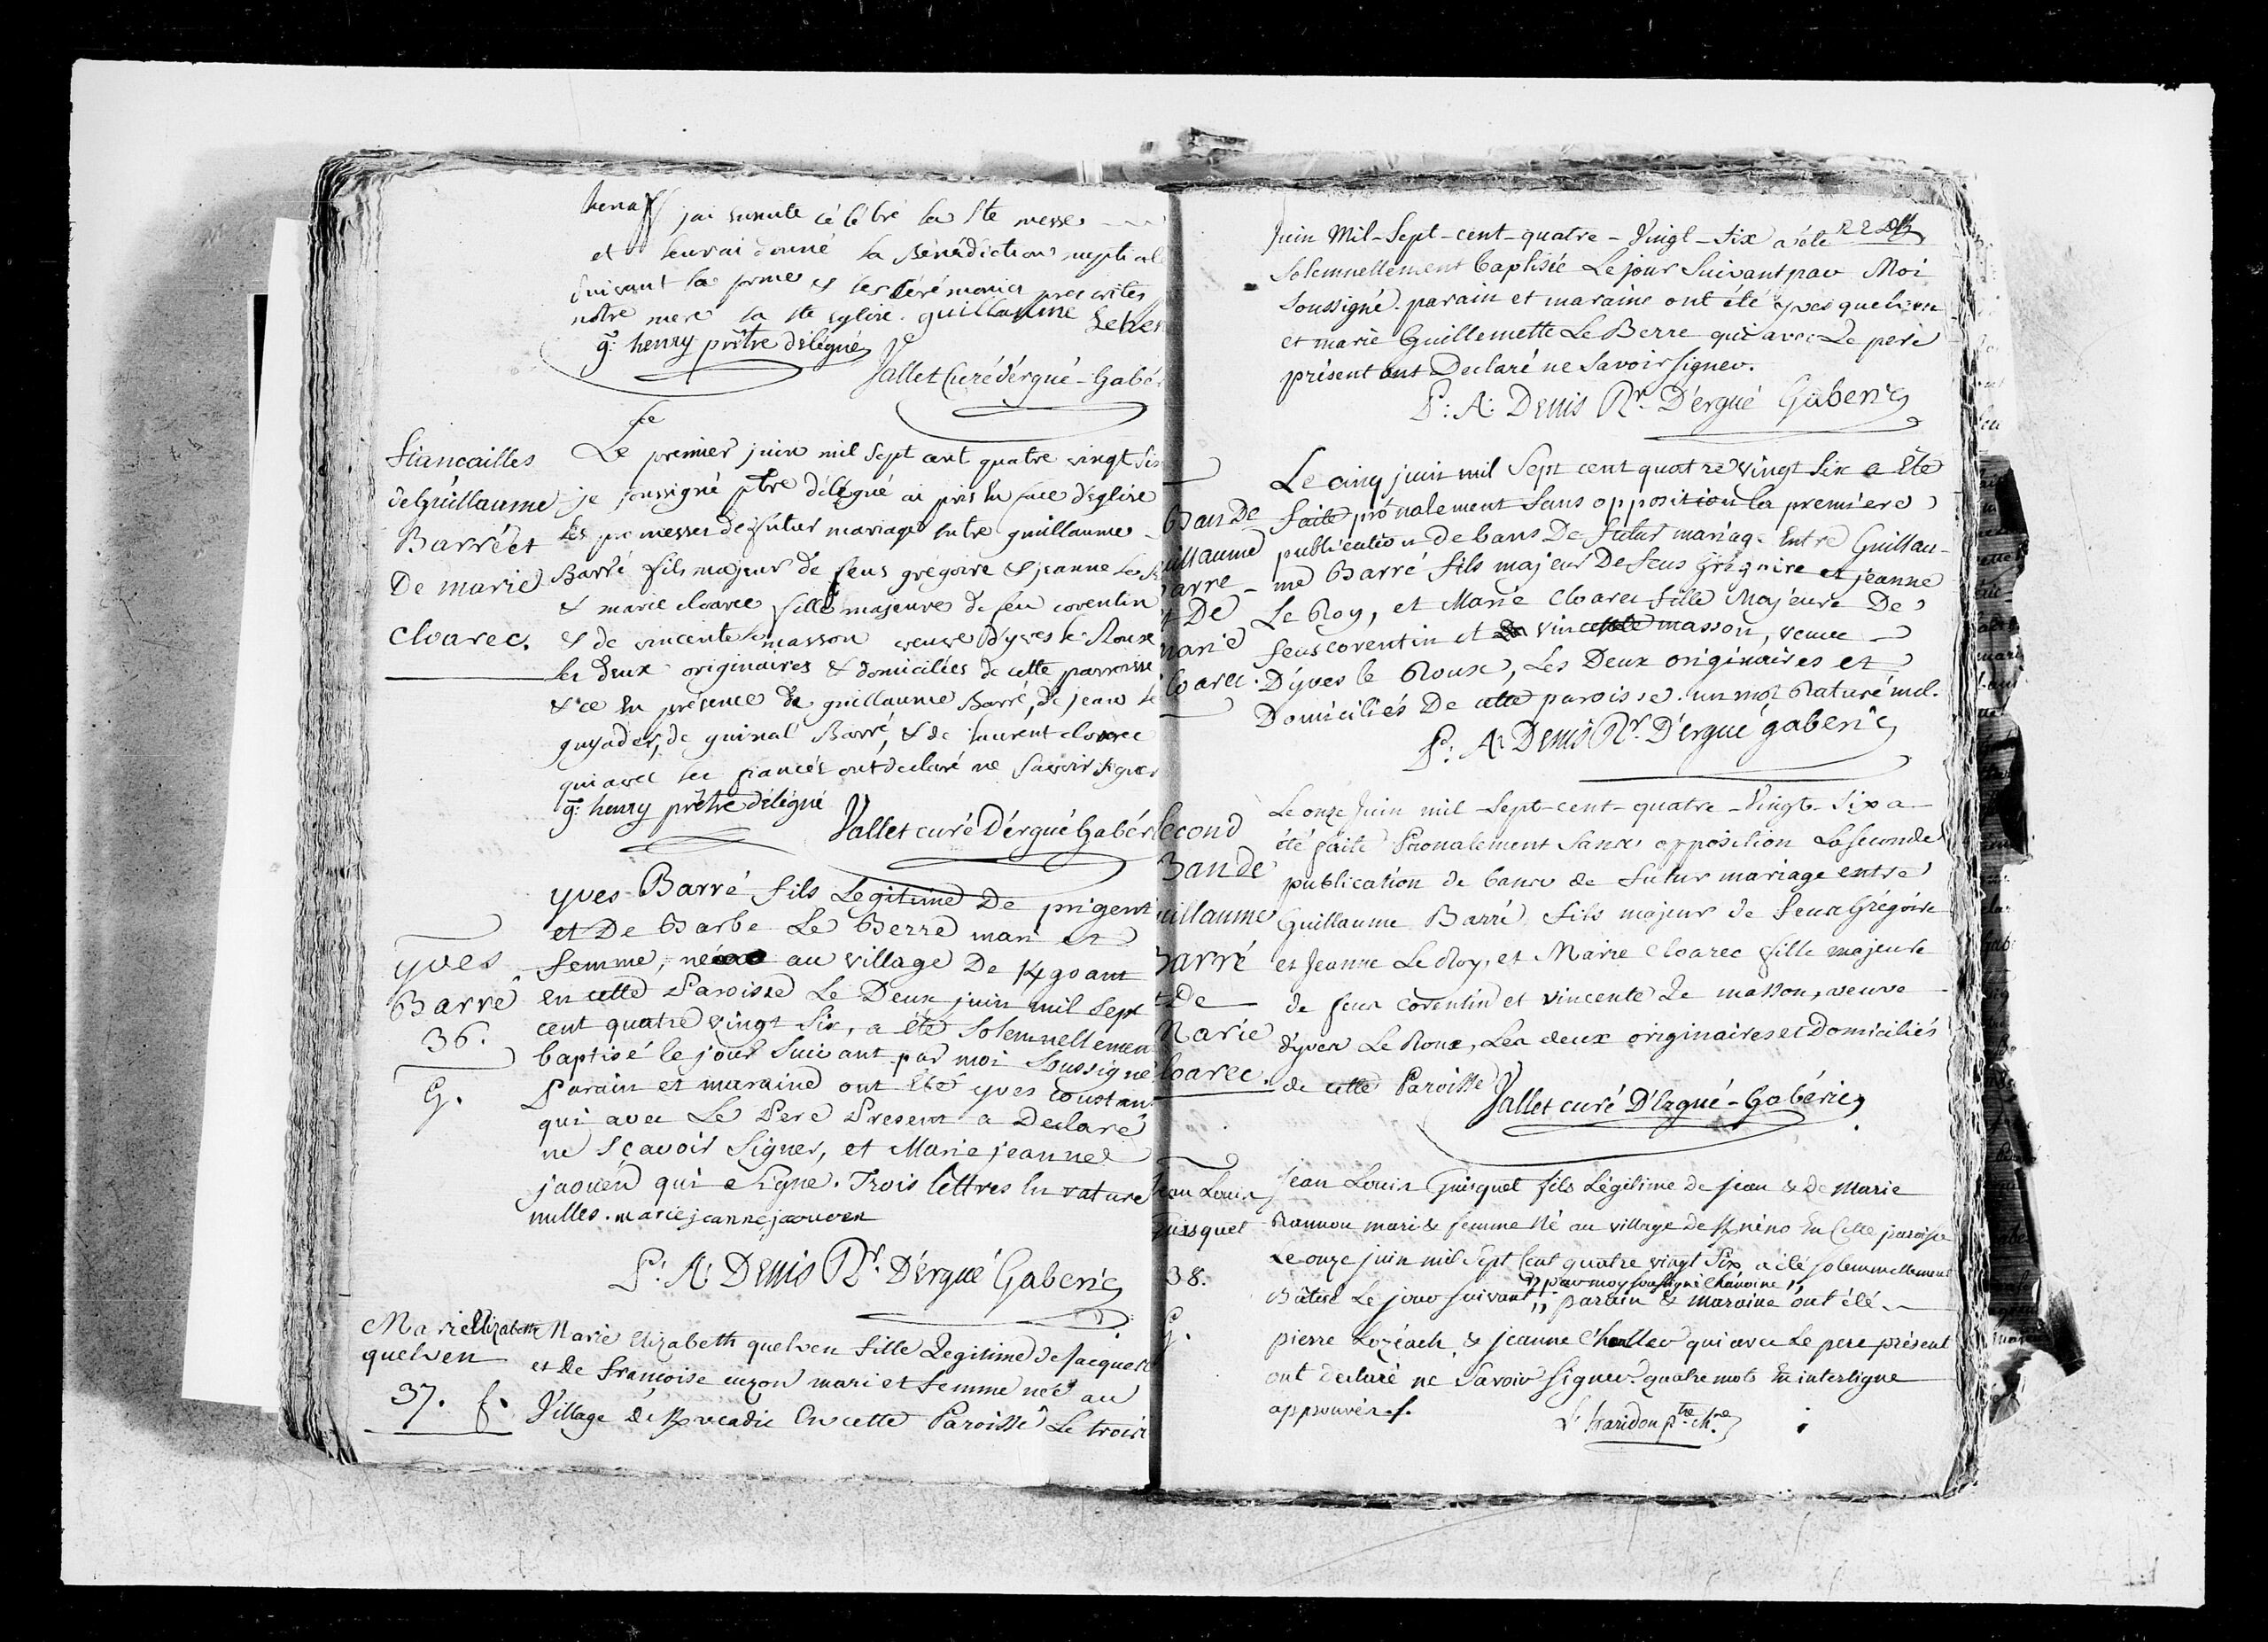 henaff jai ensuite célébré la Ste messe
et leur ai donné la Bénédiction nuptial
suivant la forme et les cérémonies prescrites
notre mere la ste eglise. guillaume Lehen
g. henry prêtre délégué
Vallet Curé d'érgué-Gabér
fiancailles
de Guillaume
Barré et
De marie
Cloarec.
Le premier juin mil Sept cent quatre vingt Six
je soussigné ptre délégué ai pris en face d'eglise
les promesses de futur mariage entre guillaume
Barré fils majeur de feus grégoire & jeanne Le
& marie cloarec fille majeure de feu corentin
& de vincente le masson veuve d'yves le Roux
les deux originaires & domiciliées de cette parroisse
& ce en présence de guillaume Barré, de jean le
guyader, de guinal Barré, & de laurent cloarec
qui avec les fiancés ont declaré ne Savoir signer
g. henry prêtre délégué
Vallet curé D'érgué Gabér
yves
Barré
36.
G.
yves Barré fils Legitime De prigent
et De Barbe Le Berre mari et
femme, né au village De Kgoant
en cette Paroisse Le Deux juin mil Sept
cent quatre vingt Six, a été Solemnellemen
baptisé le jour Suivant par moi Soussigné
Parain et maraine ont été yves Coustan
qui avec Le Pere Present a Declaré
ne Sçavoir Signer, et Marie jeanne
jaouën qui Signe. Trois lettres en rature
nulles. marie jeanne jaouen
P: A: Denis Rr. D'érgué Gaberic
Marie Elizabeth
quelven
37. f.
Marie Elizabeth quelven fille Legitime de Jacque
et de francoise cuzon mari et femme née au
Village de en cette Paroisse Le trois
Juin Mil-Sept-cent-quatre-Vingt-Six a été 22
Solemnellement baptisée Le jour Suivant par Moi
Soussigné. parain et maraine ont été yves
et marie Guillemette Le Berre qui avec Le pere
présent ont Declaré ne Savoir signer.
P: A: Denis Rr. D'érgué Gaberic
Ban De
uillaume
arre
t De
marie
loarec.
Le cinq juin mil Sept cent quatre vingt Six a été
faite prônalement Sans opposition la premiere
publication de bans De futur mariage Entre Guillau-
me Barré fils majeur De feus Grégoire et jeanne
Le Roy, et Marie Cloarec fille Majeure De
feus corentin et vincente masson, veuve
D'yves le Roux, Les Deux originaires et
Domiciliés De cette paroisse. un mot Raturé nul.
P: A: Denis Rr. D'érgué gaberic
Second
Ban de
uillaume
Barré
t De
Marie
loarec.
Le onze Juin mil-Sept-cent-quatre-Vingt-Six a
été faite Pronalement Sans opposition La Seconde
publication de bans de futur mariage entre
Guillaume Barré fils majeur de feus Grégoire
et Jeanne Le Roy, et Marie Cloarec fille majeure
de feus corentin et vincente Le masson, veuve
d'yves Le Roux, Les deux originaires et Domiciliés
de cette Paroisse
Vallet curé D'Ergué-Gabéric
Jean Louis
Guisquet
38.
G.
Jean Louis Guisquet fils Légitime de jean & De Marie
Rannou mari & femme Né au village de Knéno En Cette paroisse
Le onze juin mil Sept Cent quatre vingt Six a été solemnellement
par moy soussigné Chanoine
Bâtisé Le jour suivant parain & maraine ont été
pierre Lozéach, & jeanne qui avec Le pere présent
ont déclaré ne Savoir signer. quatre mots En interligne
approuvés.
L'haridon ptre. chne.